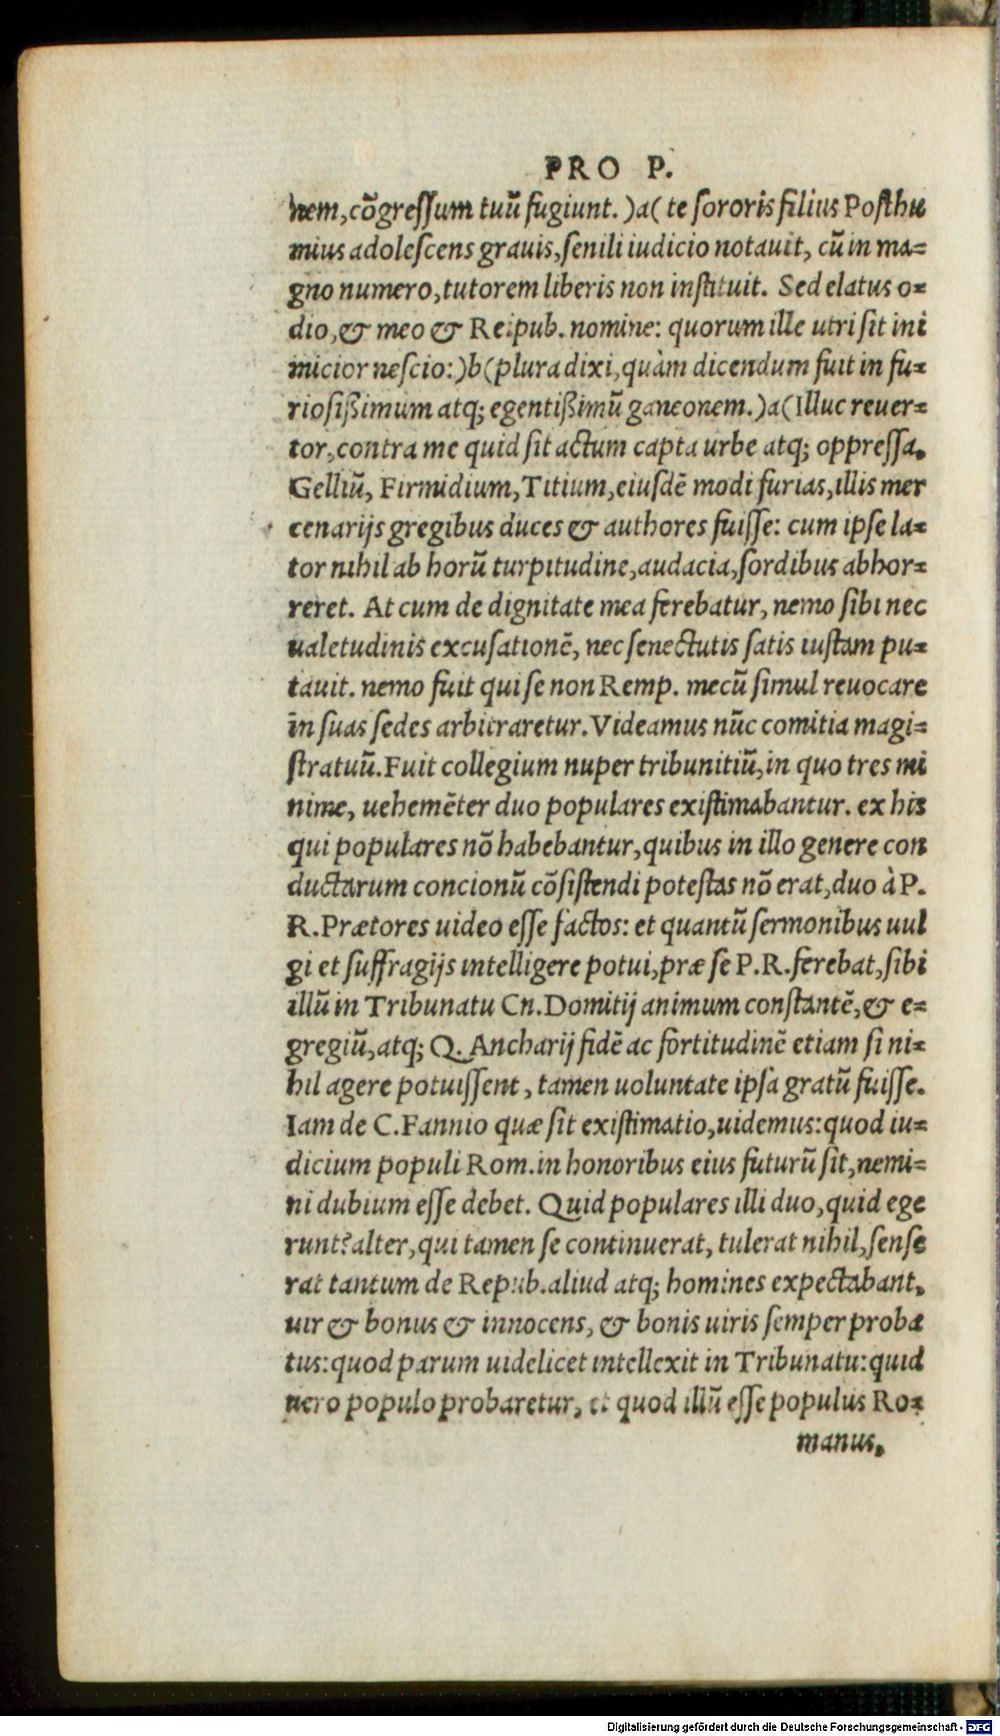 PRO P.
nem,cõgressum tuũ fugiunt. )a( te sororis filius Posthu
mius adolescens grauis,senili iudicio notauit, cũ in ma=
gno numero,tutorem liberis non instituit. Sed elatus o=
dio,& meo & Reipub. nomine: quorum ille utri sit ini
micior nescio:)b(plura dixi,quàm dicendum fuit in fu=
riosißimum atq; egentißimũ ganeonem.)a(Illuc reuer=
tor,contra me quid sit actum capta urbe atq; oppressa.
Gelliũ, Firmidium,Titium,eiusdẽ modi furias,illis mer
cenarijs gregibus duces & authores fuisse: cum ipse la=
tor nihil ab horũ turpitudine,audacia,sordibus abhor=
reret. At cum de dignitate mea ferebatur, nemo sibi nec
ualetudinis excusationẽ, nec senectutis satis iustam pu=
tauit. nemo fuit qui se non Remp. mecũ simul reuocare
in suas sedes arbitraretur. Videamus nũc comitia magi=
stratuũ.Fuit collegium nuper tribunitiũ,in quo tres mi
nime, uehemẽter duo populares existimabantur. ex his
qui populares nõ habebantur,quibus in illo genere con
ductarum concionũ cõsistendi potestas nõ erat,duo à P.
R.Prætores uideo esse factos: et quantũ sermonibus uul
gi et suffragijs intelligere potui,præ se P.R.ferebat,sibi
illũ in Tribunatu Cn.Domitij animum constantẽ,& e=
gregiũ,atq; Q. Ancharij fidẽ ac fortitudinẽ etiam si ni=
hil agere potuissent, tamen uoluntate ipsa gratũ fuisse.
Iam de C.Fannio quæ sit existimatio,uidemus:quod iu=
dicium populi Rom.in honoribus eius futurũ sit,nemi=
ni dubium esse debet. Quid populares illi duo,quid ege
runt?alter,qui tamen se continuerat, tulerat nihil,sense
rat tantum de Repub.aliud atq; homines expectabant,
uir & bonus & innocens, & bonis uiris semper proba
tus:quod parum uidelicet intellexit in Tribunatu:quid
uero populo probaretur, et quod illũ esse populus Ro=
manus,
Digitalisierung gefördert durch die Deutsche Forschungsgemeinschaft - DFG